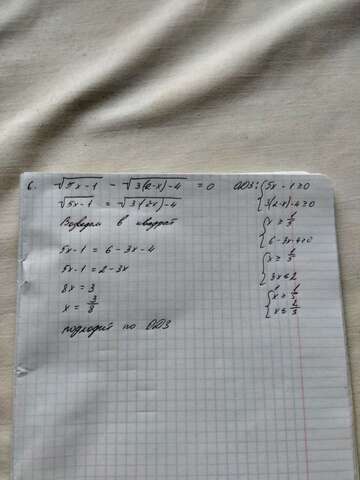 6. √(5x-1) - √(3(2-x)-4) = 0
√(5x-1) = √(3(2x)-4)
Возведем в квадрат
5x-1 = 6-3x-4
5x-1 = 2-3x
8x = 3
x = 3/8
подходит по ОДЗ
ОДЗ: { 5x-1≥0
3(2-x)-4≥0
{ x ≥ 1/5
6-3x-4≥0
{ x ≥ 1/5
3x ≤ 2
{ x ≥ 1/5
x ≤ 2/3